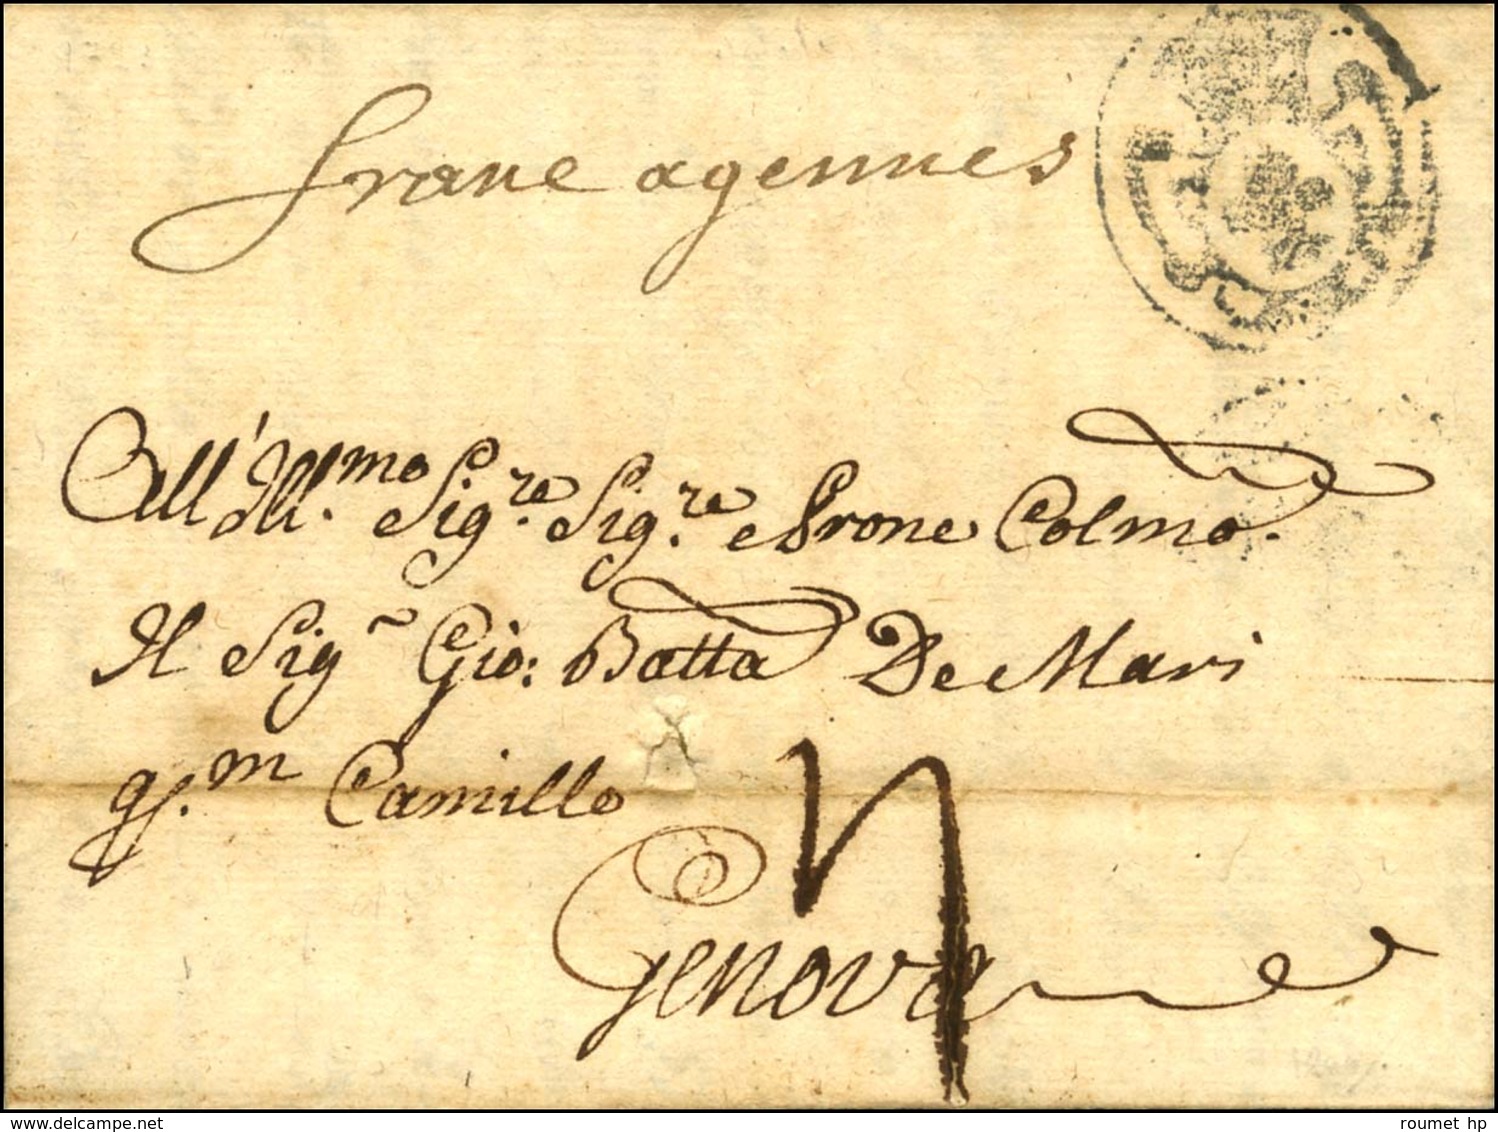 franc agennes
All' Ill.mo Sig.re Sig.re e Prone Colmo.
Il Sigr Gio: Batta De Mari
q.m Camillo
Genova
roumet hp